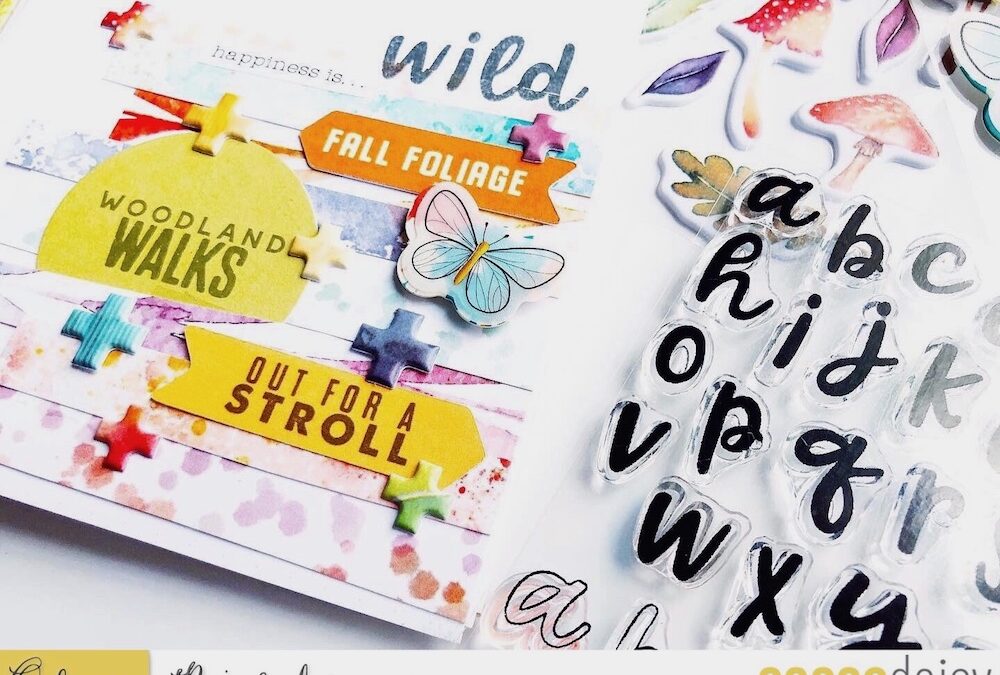 happiness is...
wild
FALL FOLIAGE
WOODLAND
WALKS
OUT FOR A
STROLL
a b c
h i j k
o p q r
v w x y
a